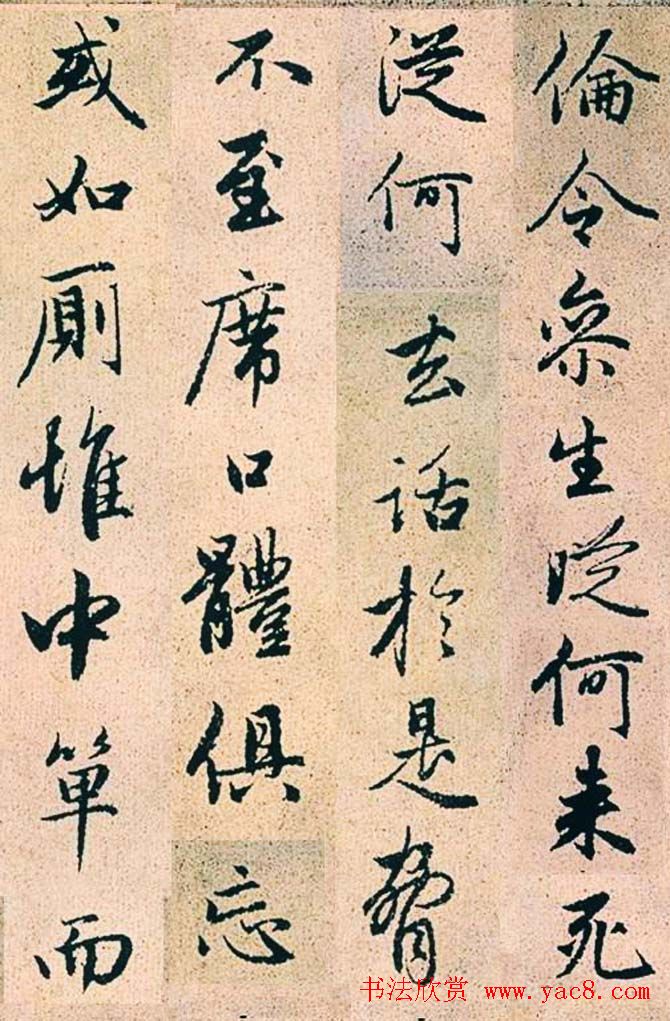 倫令參生從何來死
從何去話於是脅
不至席口體俱忘
或如厠惟中單而
书法欣赏 www.yac8.com